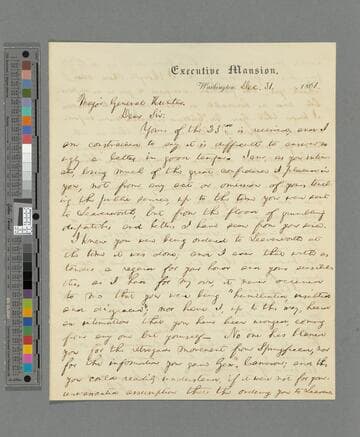 Executive Mansion,
Washington, Dec. 31, 1861.
Major General Hunter.
Dear Sir:
Yours of the 23rd is received; and I
am constrained to say it is difficult to answer so
ugly a letter in good temper. I am, as you intim-
ate, losing much of the great confidence I placed in
you, not from any act or omission of yours touch-
ing the public service, up to the time you were sent
to Leavenworth, but from the flood of grumbling
despatches and letters I have seen from you since.
I knew you were being ordered to Leavenworth at
the time it was done; and I aver that with as
tender a regard for your honor and your sensibili-
ties as I had for my own, it never occurred
to me that you were being "humiliated, insulted
and disgraced"; nor have I, up to this day, heard
an intimation that you have been wronged, coming
from any one but yourself. No one has blamed
you for the retrograde movement from Springfield, nor
for the information you gave Gen. Cameron; and this
you could readily understand, if it were not for your
unwarranted assumption that the ordering you to Leaven-